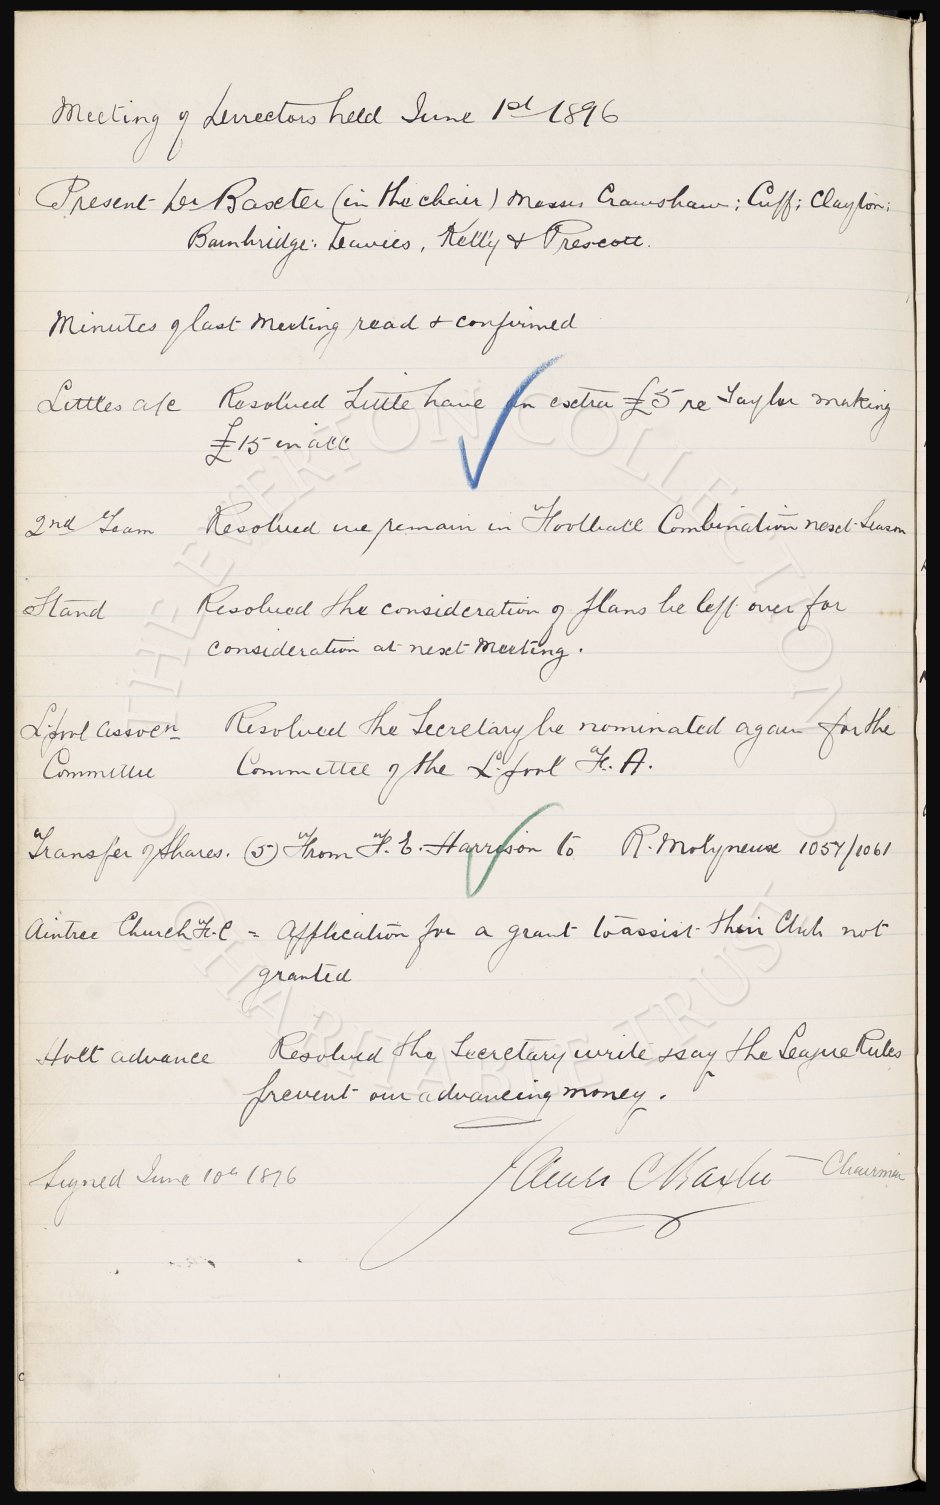 Meeting of Directors held June 1st 1896
Present Dr Baxter (in the chair) Messrs Crawshaw; Cuff; Clayton;
Bainbridge; Leavies, Kelly & Prescott.
Minutes of last Meeting read & confirmed
Littles a/c Resolved Little have an extra £5 re Taylor making
£15 in all
2nd Team Resolved we remain in Football Combination next Season
Stand Resolved the consideration of plans be left over for
consideration at next Meeting.
L'pool Assocn Resolved the Secretary be nominated again for the
Committee Committee of the L'pool F.A.
Transfer of Shares. (5) From F. E. Harrison to R. Molyneux 1057/1061
Aintree Church F.C = Application for a grant to assist their Club not
granted
Holt advance Resolved the Secretary write & say the League Rules
prevent our advancing money.
Signed June 10th 1896 James C Baxter Chairman
THE EVERTON COLLECTION
CHARITABLE TRUST